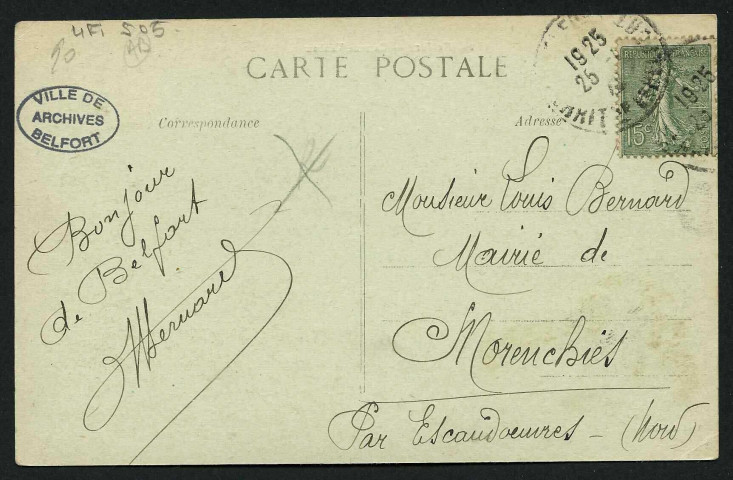 4Fi 905
CARTE POSTALE
VILLE DE
ARCHIVES
BELFORT
Correspondance
Adresse
REPUBLIQUE FRANÇAISE
15c
19 25
25
19 25
Bonjour
de Belfort
Bernard
Monsieur Louis Bernard
Mairie de
Morenchies
Par Escaudoeuvres - (Nord)